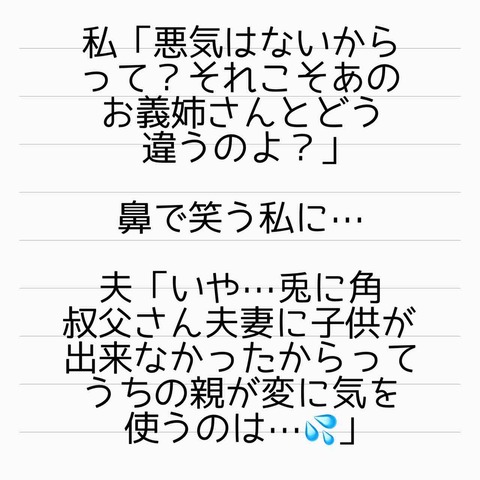 私「悪気はないから
って？それこそあの
お義姉さんとどう
違うのよ？」
鼻で笑う私に…
夫「いや…兎に角
叔父さん夫妻に子供が
出来なかったからって
うちの親が変に気を
使うのは…💦」